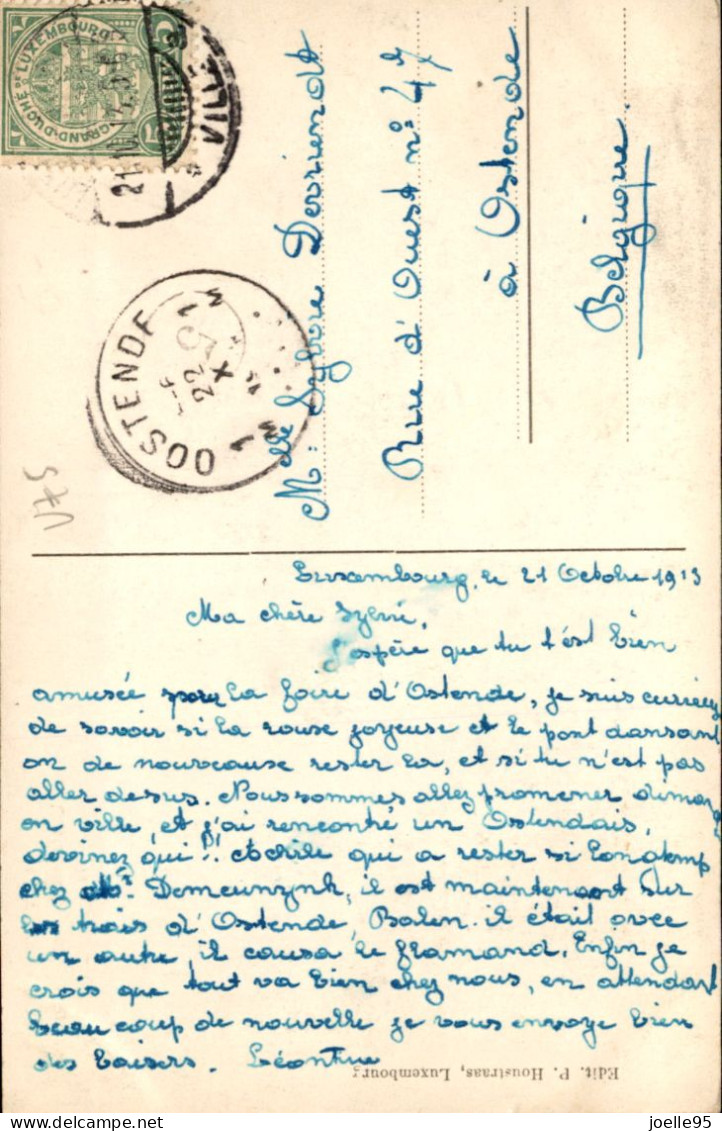 GRAND-DUCHÉ DE LUXEMBOURG
VILLE
OOSTENDE
1
22
X
5
M^elle Sylvie Devriendt
Rue d'Ouest n° 47
à Ostende
Belgique.
Luxembourg, le 21 Octobre 1913
Ma chère Sylvie,
J'espère que tu t'est bien
amusée pour la foire d'Ostende, je suis curieuz
de savoir si la rouse joyeuse et le pont dansant
on de nouveause rester la, et si tu n'est pas
aller desus. Nous sommes allez promener
on ville, et j'ai rencontré un Ostendais,
devinez qui?! Achile qui a rester si longtemp
chez il est maintenant sur
trais d'Ostende, Balen. il était avec
un autre, il causa le flamand. Enfin je
crois que tout va bien chez nous, en attendant
beaucoup de nouvelle je vous envoye bien
des baisers. Léontine
Edit. P. Houstraas, Luxembourg
joelle95